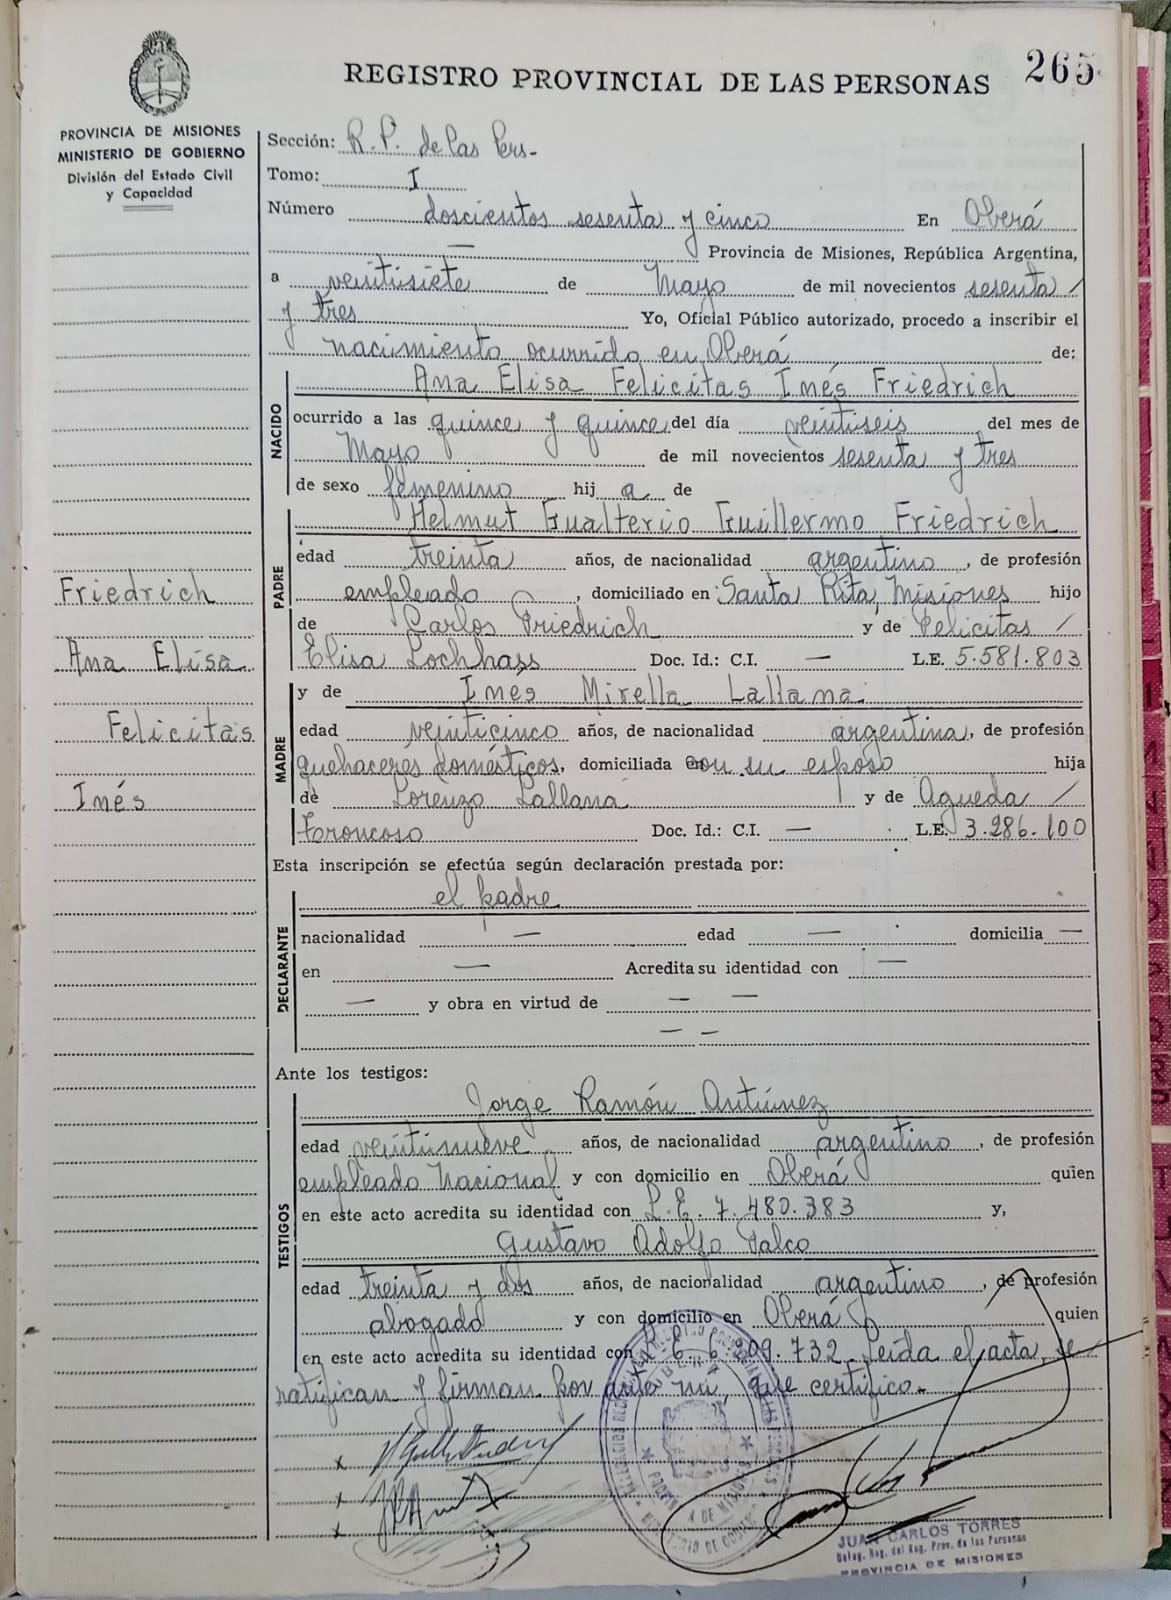 265
REGISTRO PROVINCIAL DE LAS PERSONAS
PROVINCIA DE MISIONES
MINISTERIO DE GOBIERNO
División del Estado Civil
y Capacidad
Sección: R. P. de las Pers-
Tomo: I
Número doscientos sesenta y cinco En Oberá
— Provincia de Misiones, República Argentina,
a veintisiete de Mayo de mil novecientos sesenta /
y tres Yo, Oficial Público autorizado, procedo a inscribir el
nacimiento ocurrido en Oberá de:
NACIDO
Ana Elisa Felicitas Inés Friedrich
ocurrido a las quince y quince del día veintiseis del mes de
Mayo de mil novecientos sesenta y tres
de sexo femenino hij a de
PADRE
Helmut Gualterio Guillermo Friedrich
edad treinta años, de nacionalidad argentino, de profesión
empleado, domiciliado en Santa Rita, Misiones hijo
de Carlos Friedrich y de Felicitas /
Elisa Lochhass Doc. Id.: C.I. — L.E. 5.581.803
MADRE
y de Inés Mirella Lallana
edad veinticinco años, de nacionalidad argentina, de profesión
quehaceres domésticos, domiciliada con su esposo hija
de Lorenzo Lallana y de Agueda /
Troncoso Doc. Id.: C.I. — L.E. 3.286.100
Friedrich
Ana Elisa
Felicitas
Inés
Esta inscripción se efectúa según declaración prestada por:
DECLARANTE
el padre
nacionalidad — edad — domicilia —
en — Acredita su identidad con —
— y obra en virtud de — —
— —
Ante los testigos:
TESTIGOS
Jorge Ramón Antúnez
edad veintinueve años, de nacionalidad argentino, de profesión
empleado Nacional y con domicilio en Oberá quien
en este acto acredita su identidad con L.E. 7.480.383 y,
Gustavo Adolfo Palco
edad treinta y dos años, de nacionalidad argentino, de profesión
abogado y con domicilio en Oberá quien
en este acto acredita su identidad con L.E. 6.209.732. Leída el acta, se
ratifican y firman por ante mí, que certifico.-
JUAN CARLOS TORRES
Deleg. Reg. del Reg. Prov. de las Personas
PROVINCIA DE MISIONES